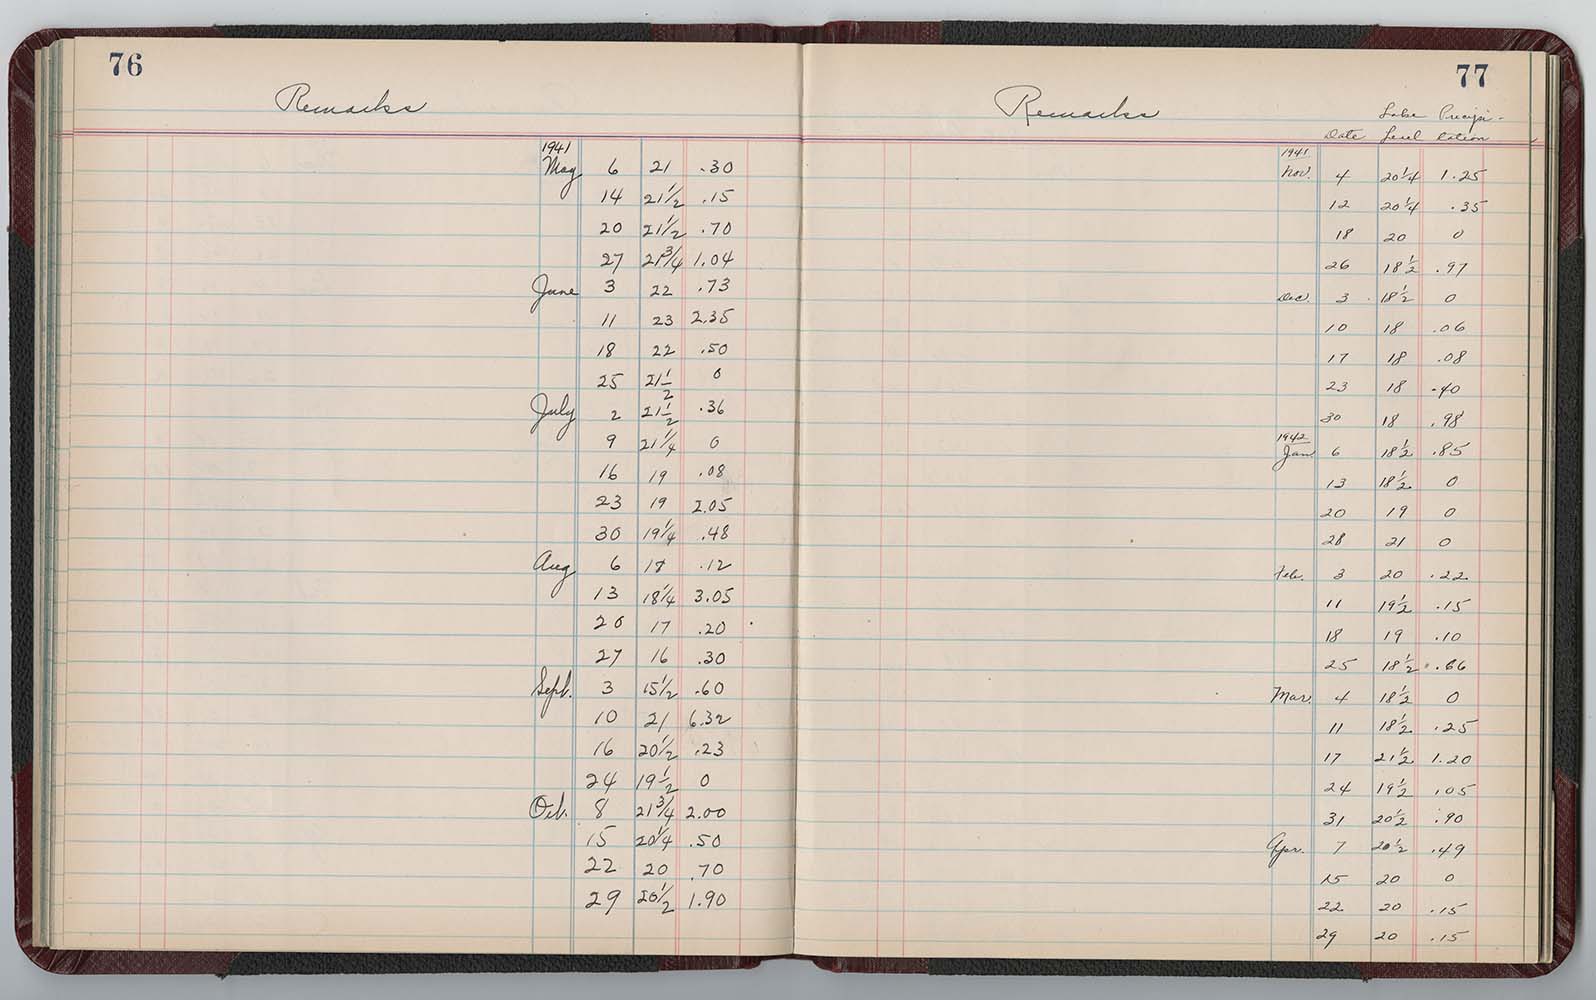 76
Remarks
1941
May 6 21 .30
14 21 1/2 .15
20 21 1/2 .70
27 21 3/4 1.04
June 3 22 .73
11 23 2.35
18 22 .50
25 21 1/2 0
July 2 21 1/2 .36
9 21 1/4 0
16 19 .08
23 19 2.05
30 19 1/4 .48
Aug 6 17 .12
13 18 1/4 3.05
20 17 .20
27 16 .30
Sept. 3 15 1/2 .60
10 21 6.32
16 20 1/2 .23
24 19 1/2 0
Oct. 8 21 3/4 2.00
15 20 1/4 .50
22 20 .70
29 20 1/2 1.90
77
Remarks
Date Lake Level Precipi-tation
1941
Nov. 4 20 1/4 1.25
12 20 1/4 .35
18 20 0
26 18 1/2 .97
Dec. 3 18 1/2 0
10 18 .06
17 18 .08
23 18 .40
30 18 .98
1942
Jan 6 18 1/2 .85
13 18 1/2 0
20 19 0
28 21 0
Feb. 3 20 .22
11 19 1/2 .15
18 19 .10
25 18 1/2 .66
Mar. 4 18 1/2 0
11 18 1/2 .25
17 21 1/2 1.20
24 19 1/2 .05
31 20 1/2 .90
Apr. 7 20 1/2 .49
15 20 0
22 20 .15
29 20 .15